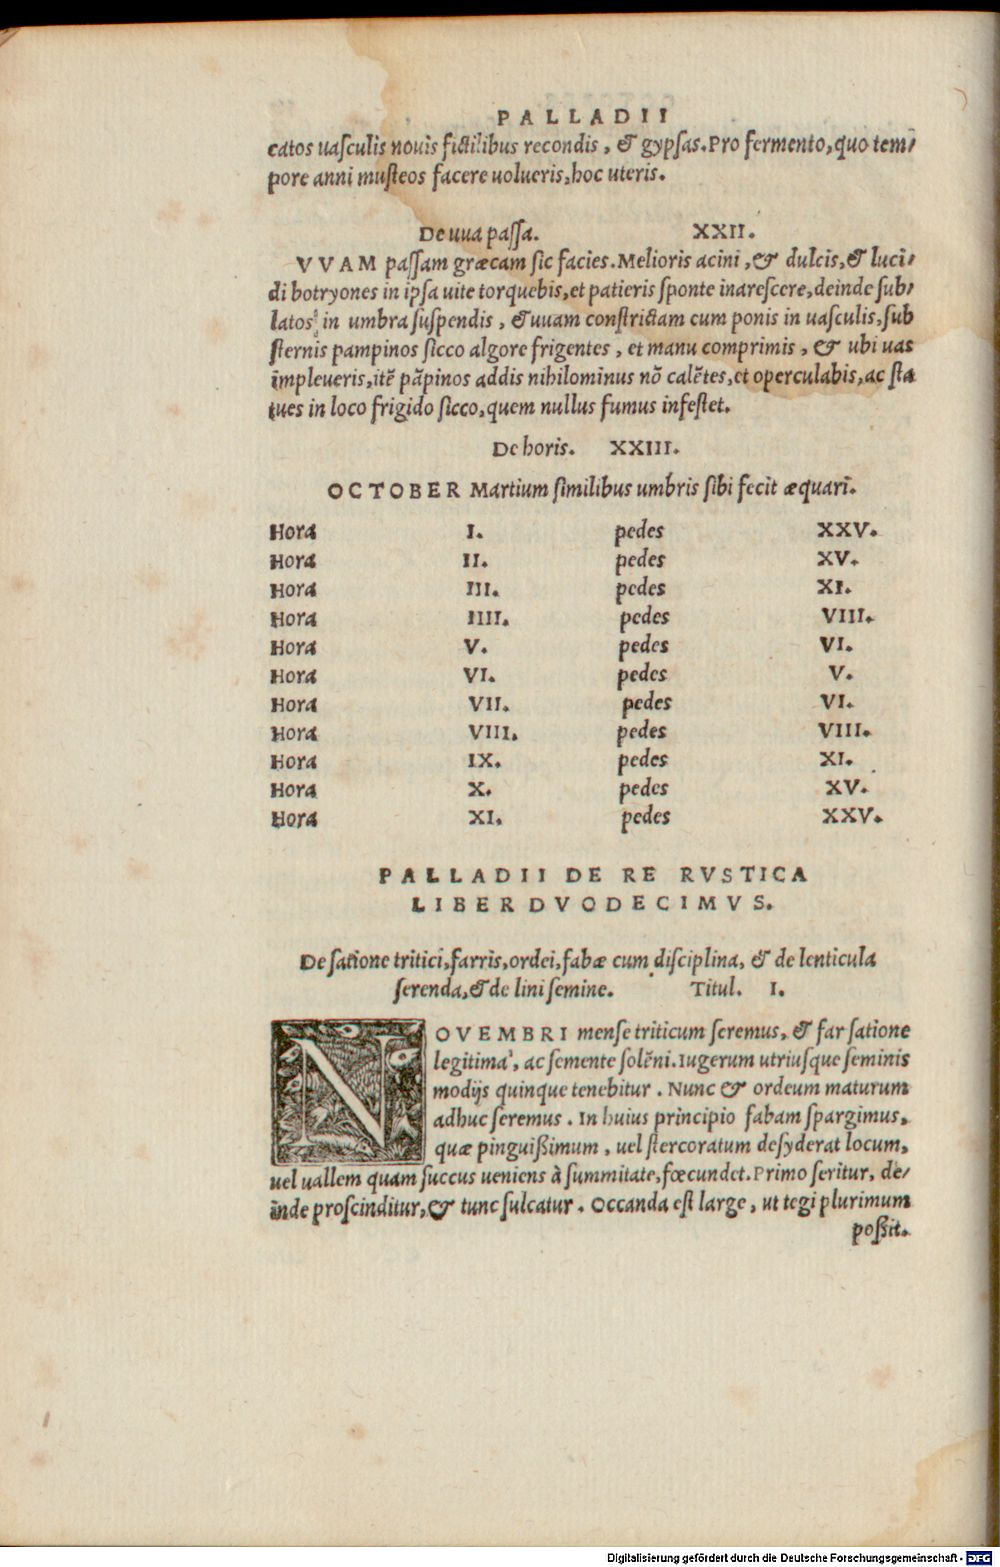 PALLADII
catos uaſculis nouis fictilibus recondis, & gypſas. Pro fermento, quo tem/
pore anni muſteos facere uolueris, hoc uteris.
De uua paſſa. XXII.
VVAM paſſam græcam ſic facies. Melioris acini, & dulcis, & luci/
di botryones in ipſa uite torquebis, et patieris ſponte inareſcere, deinde ſub/
latos in umbra ſuſpendis, & uuam conſtrictam cum ponis in uaſculis, ſub
ſternis pampinos ſicco algore frigentes, et manu comprimis, & ubi uas
impleueris, itẽ pãpinos addis nihilominus nõ calẽtes, et operculabis, ac ſta
tues in loco frigido ſicco, quem nullus fumus infeſtet.
De horis. XXIII.
OCTOBER Martium ſimilibus umbris ſibi fecit æquari.
Hora I. pedes XXV.
Hora II. pedes XV.
Hora III. pedes XI.
Hora IIII. pedes VIII.
Hora V. pedes VI.
Hora VI. pedes V.
Hora VII. pedes VI.
Hora VIII. pedes VIII.
Hora IX. pedes XI.
Hora X. pedes XV.
Hora XI. pedes XXV.
PALLADII DE RE RVSTICA
LIBER DVODECIMVS.
De ſatione tritici, farris, ordei, fabæ cum diſciplina, & de lenticula
ſerenda, & de lini ſemine. Titul. I.
NOVEMBRI menſe triticum ſeremus, & far ſatione
legitima, ac ſemente ſolẽni. Iugerum utriuſque ſeminis
modijs quinque tenebitur. Nunc & ordeum maturum
adhuc ſeremus. In huius principio fabam ſpargimus,
quæ pinguißimum, uel ſtercoratum deſyderat locum,
uel uallem quam ſuccus ueniens à ſummitate, fœcundet. Primo ſeritur, de/
inde proſcinditur, & tunc ſulcatur. Occanda eſt large, ut tegi plurimum
poßit.
Digitalisierung gefördert durch die Deutsche Forschungsgemeinschaft - DFG